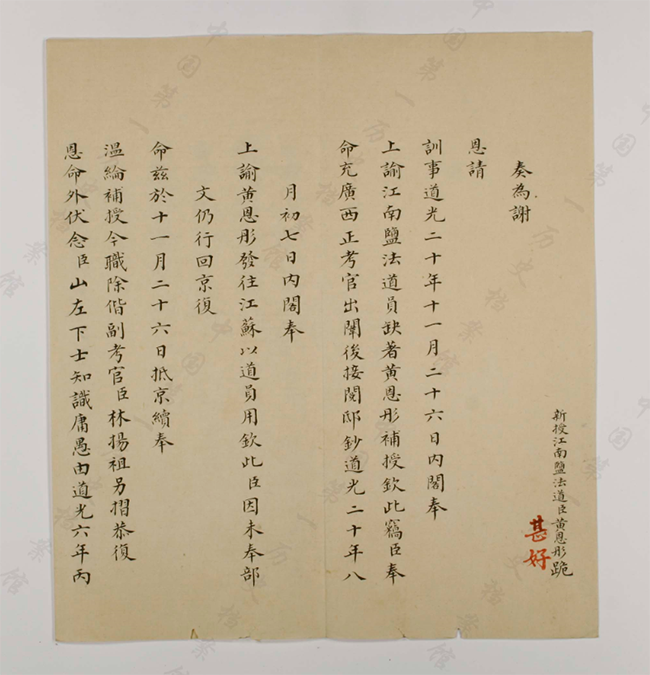 新授江南鹽法道臣黃恩彤跪
甚好
奏為謝
恩請
訓事道光二十年十一月二十六日內閣奉
上諭江南鹽法道員缺著黃恩彤補授欽此竊臣奉
命充廣西正考官出闈後接閱邸鈔道光二十年八
月初七日內閣奉
上諭黃恩彤發往江蘇以道員用欽此臣因未奉部
文仍行回京復
命茲於十一月二十六日抵京續奉
溫綸補授今職除偕副考官臣林揚祖另摺恭復
恩命外伏念臣山左下士知識庸愚由道光六年丙
中国第一历史档案馆